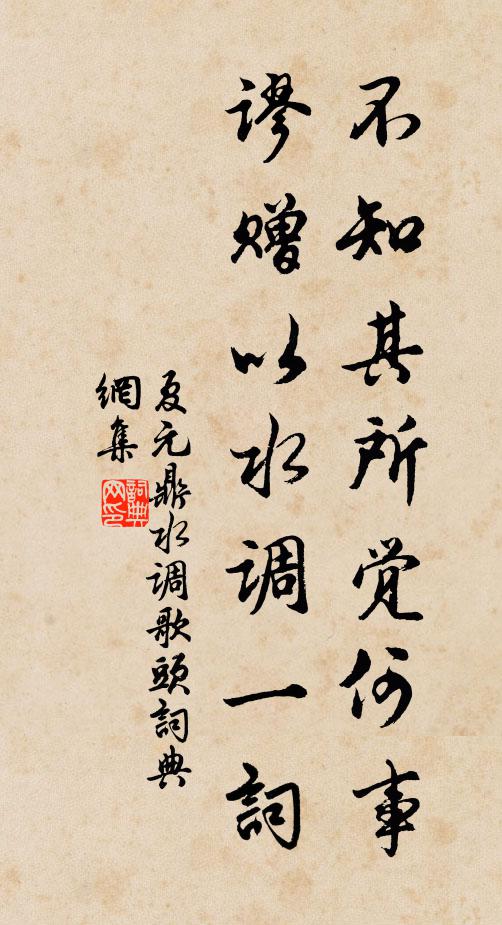 不知其所觉何事
谬赠以水调一詞
夏元鼎水调歌頭詞典
網集
詞典
网印